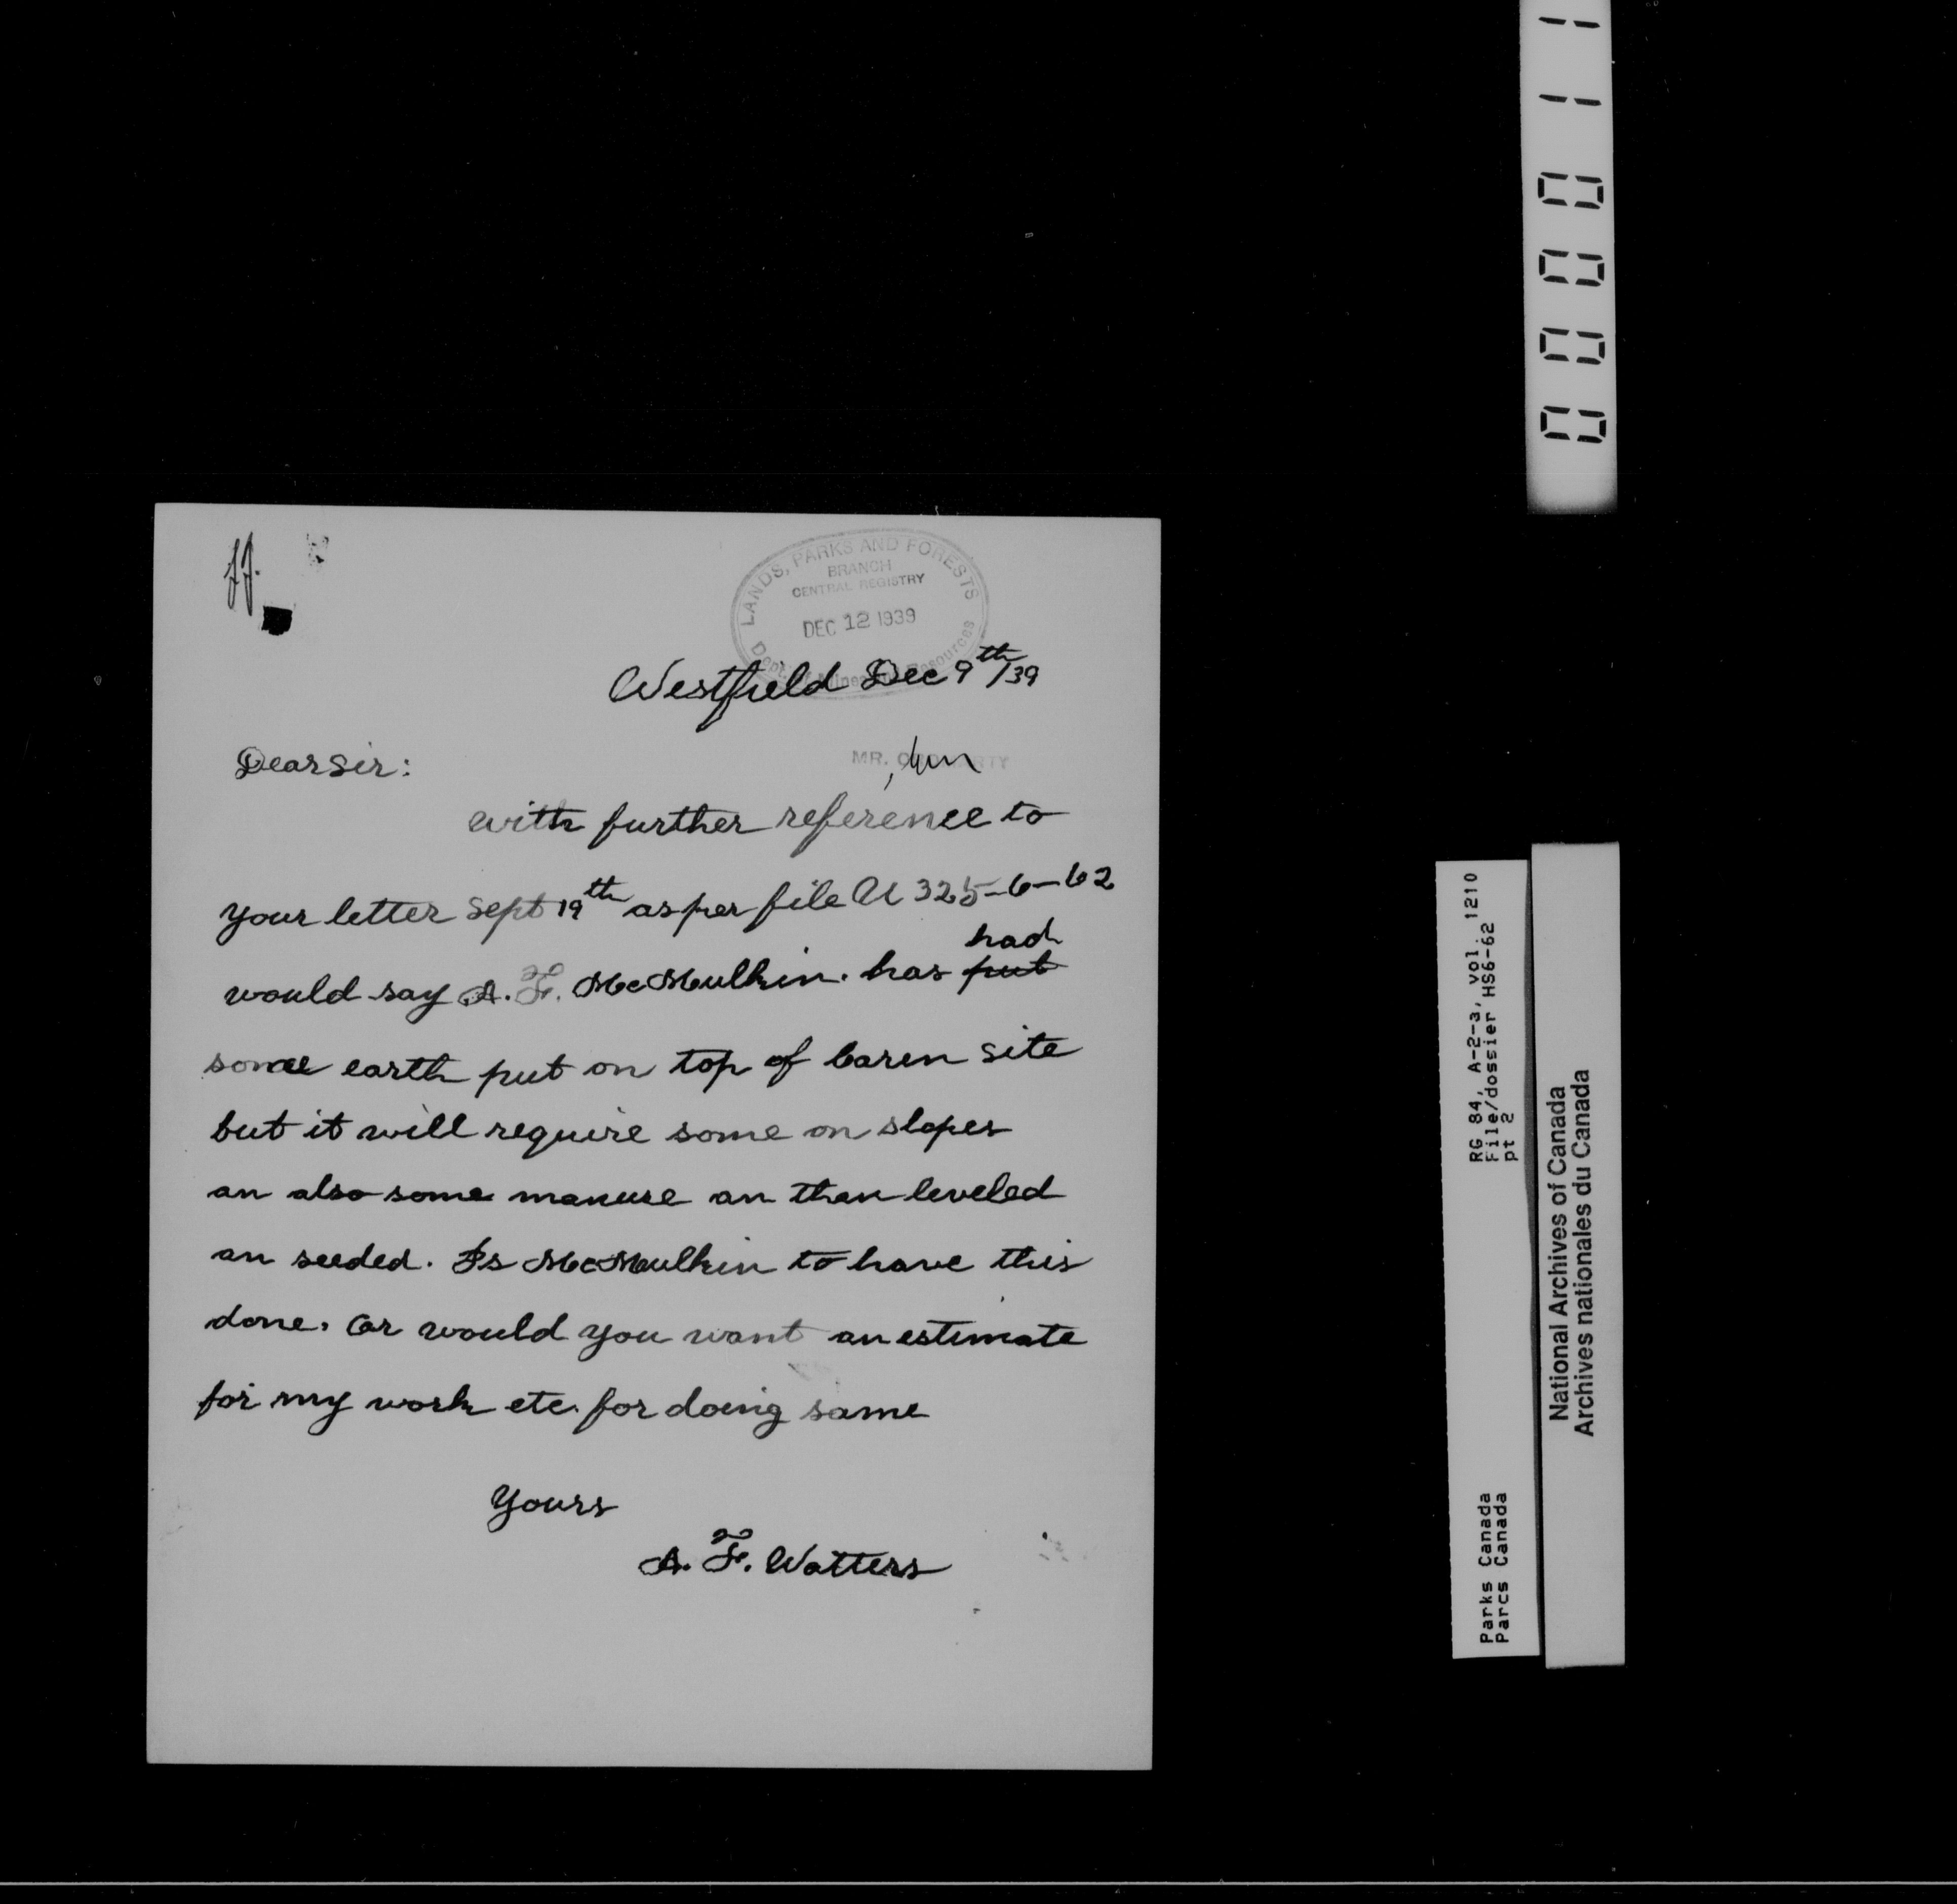 000011
LANDS, PARKS AND FORESTS
BRANCH
CENTRAL REGISTRY
DEC 12 1939
Dept. of Mines Resources
Westfield Dec 9th/39
Dear Sir:
MR.
with further reference to
your letter Sept 19th as per file U 325-6-62
had
would say A. F. McMulkin. has put
some earth put on top of caren site
but it will require some on slopes
an also some manure an then leveled
an seeded. Is McMulkin to have this
done. Or would you want an estimate
for my work etc. for doing same
Yours
A. F. Watters
RG 84, A-2-3, vol. 1210
File/dossier HS6-62
pt 2
Parks Canada
Parcs Canada
National Archives of Canada
Archives nationales du Canada